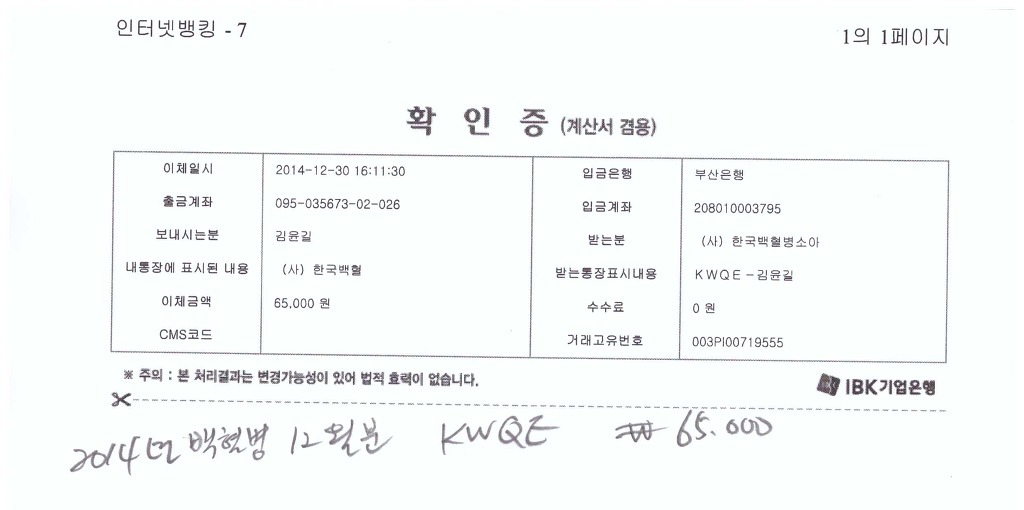 인터넷뱅킹 - 7
1의 1페이지
확 인 증 (계산서 겸용)
이체일시 2014-12-30 16:11:30 입금은행 부산은행
출금계좌 095-035673-02-026 입금계좌 208010003795
보내시는분 김윤길 받는분 (사) 한국백혈병소아
내통장에 표시된 내용 (사) 한국백혈 받는통장표시내용 KWQE-김윤길
이체금액 65,000 원 수수료 0 원
CMS코드 거래고유번호 003PI00719555
※ 주의 : 본 처리결과는 변경가능성이 있어 법적 효력이 없습니다.
IBK기업은행
2014년 백혈병 12월분 KWQE ₩ 65.000